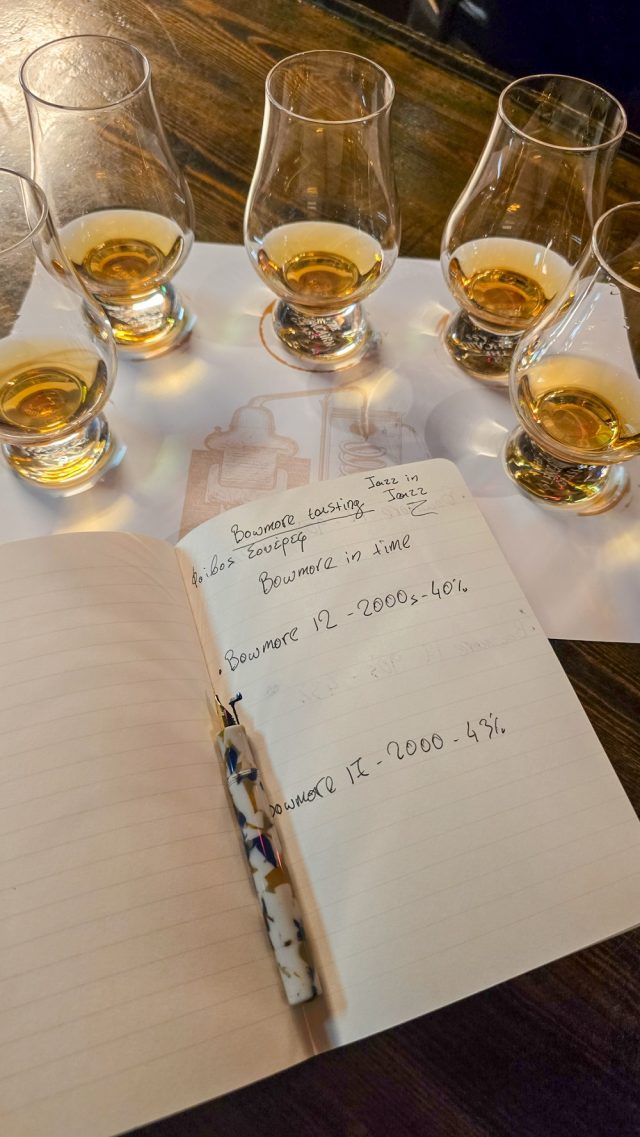 Bowmore tasting
Jazz in
Jazz
2
Bowmore in time
. Bowmore 12 - 2000s - 40%
Bowmore 17 - 2000 - 43%